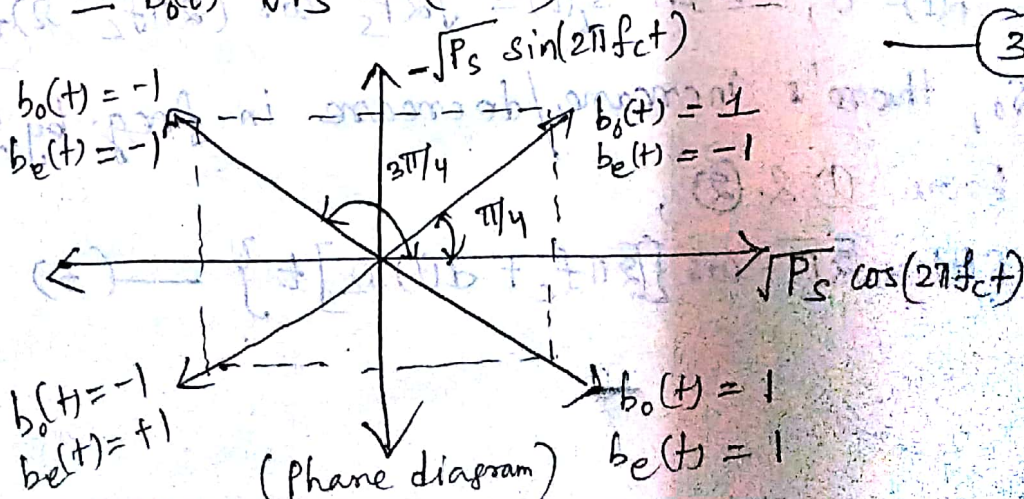 -√Ps sin(2πfct)
3
bo(t) = -1
be(t) = -1
bo(t) = 1
be(t) = -1
3π/4
π/4
√Ps cos(2πfct)
bo(t) = -1
be(t) = +1
bo(t) = 1
be(t) = 1
(Phase diagram)